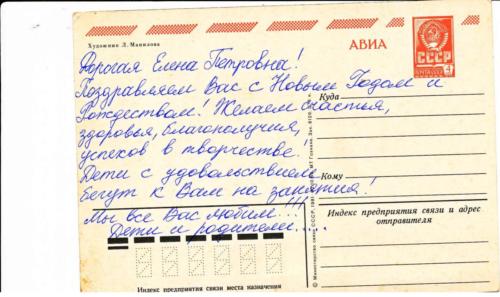 Художник Л. Манилова
АВИА
СССР
Дорогая Елена Петровна!
Поздравляем Вас с Новым Годом и
Рождеством! Желаем счастья,
здоровья, благополучия,
успехов в творчестве!
Дети с удовольствием
бегут к Вам на занятия!
Мы все Вас любим!!!
Дети и родители.....
Куда
Кому
Индекс предприятия связи и адрес
отправителя
Индекс предприятия связи места назначения
© Министерство связи СССР, 198
МТ Гознака. Зак.